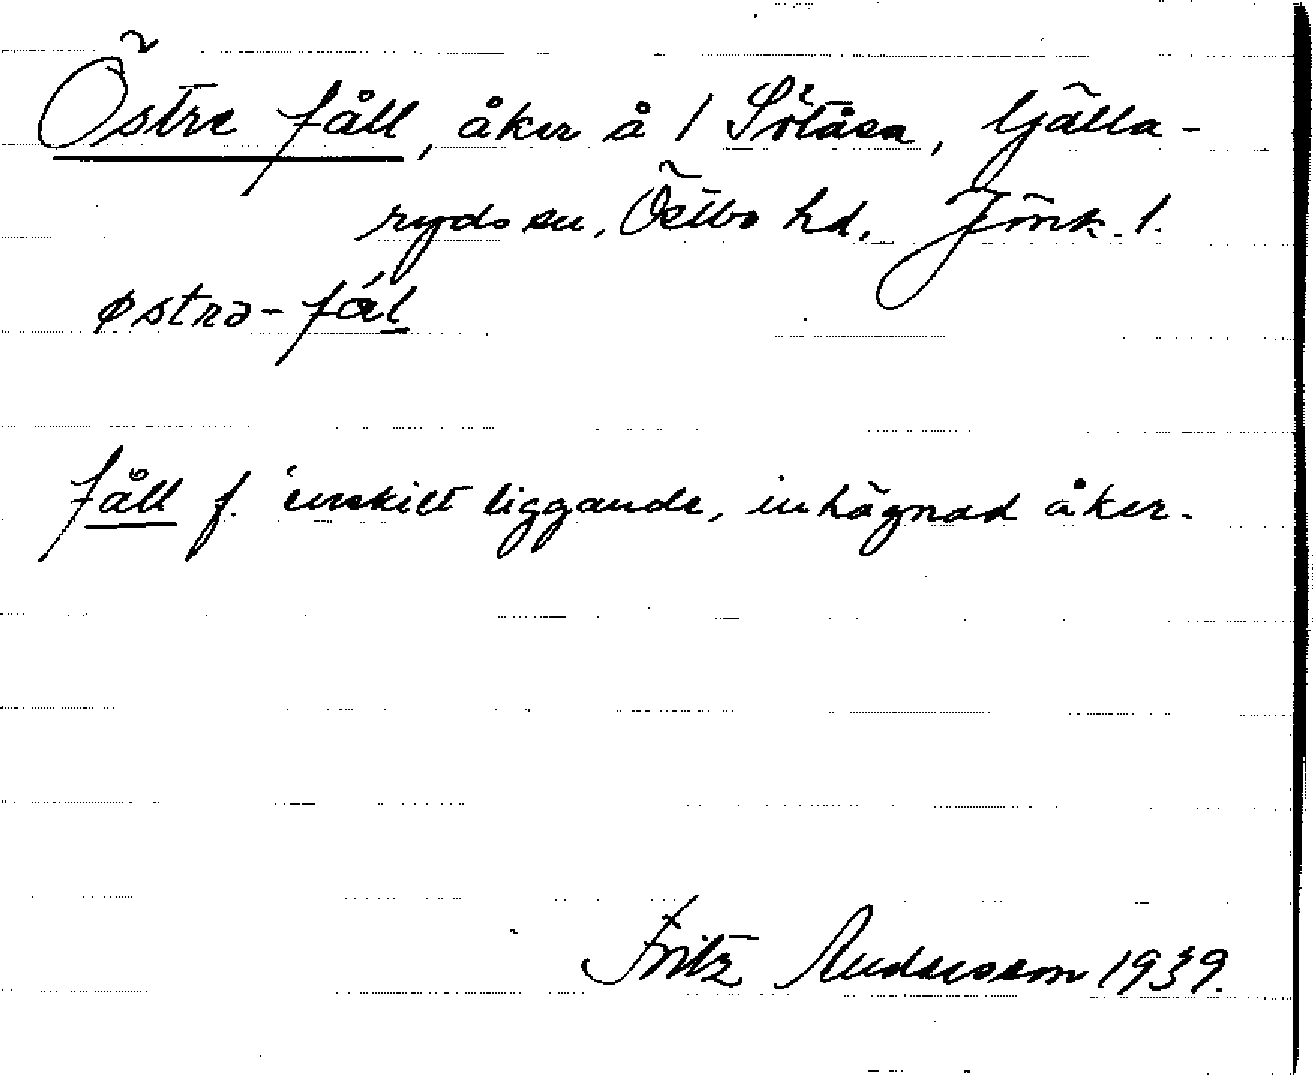 Östre fåll, åker å 1 Sötåsa, Gälla-
ryds sn, Östbo hd, Jönk. l.
østrə-fål
fåll f. 'enskilt liggande, inhägnad åker.
Fritz Andersson 1939.